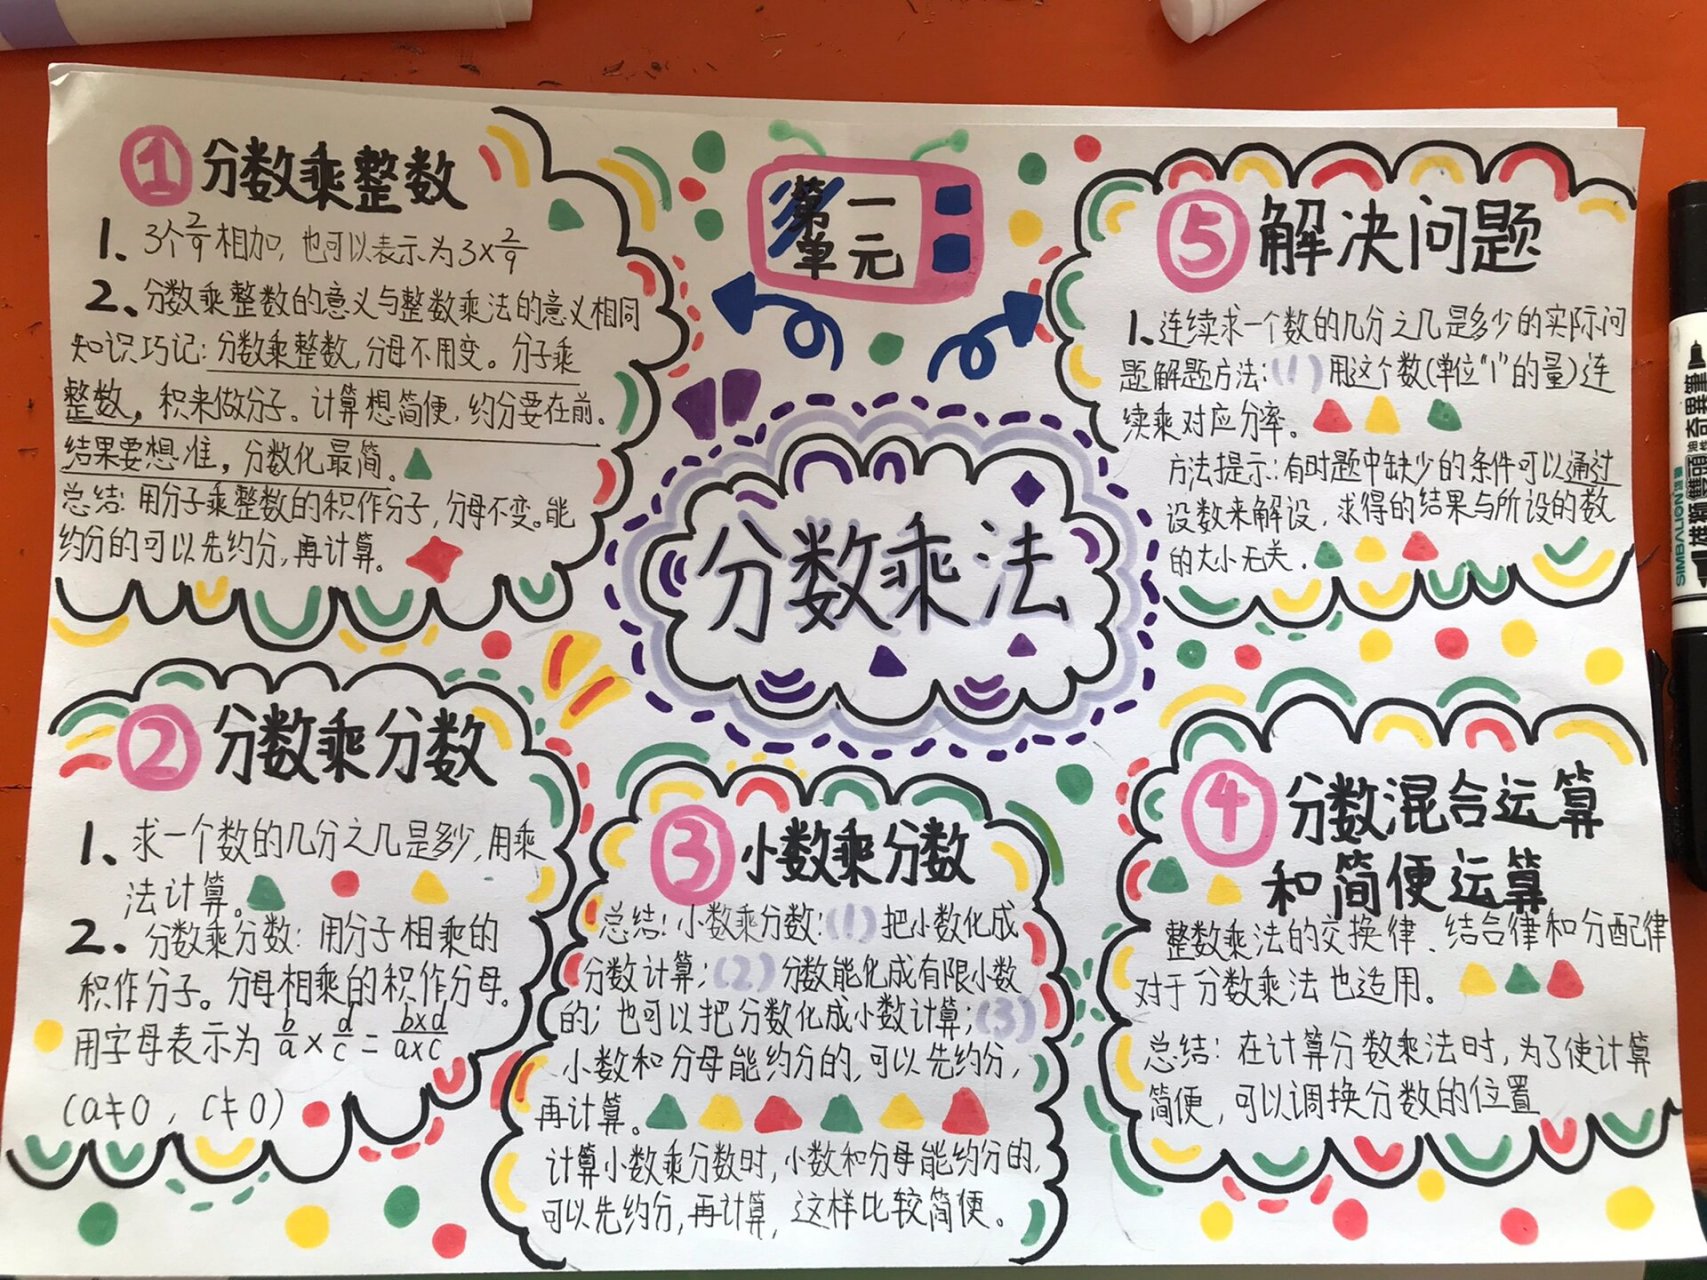 第一
单元
分数乘法
① 分数乘整数
1、3个2/9相加，也可以表示为3×2/9
2、分数乘整数的意义与整数乘法的意义相同
知识巧记：分数乘整数，分母不用变。分子乘
整数，积来做分子。计算想简便，约分要在前。
结果要想准，分数化最简。
总结：用分子乘整数的积作分子，分母不变。能
约分的可以先约分，再计算。
② 分数乘分数
1、求一个数的几分之几是多少，用乘
法计算。
2、分数乘分数：用分子相乘的
积作分子。分母相乘的积作分母。
用字母表示为 b/a × d/c = b×d/a×c
(a≠0，c≠0)
③ 小数乘分数
总结：小数乘分数：(1)把小数化成
分数计算；(2)分数能化成有限小数
的；也可以把分数化成小数计算；(3)
小数和分母能约分的，可以先约分，
再计算。
计算小数乘分数时，小数和分母能约分的，
可以先约分，再计算，这样比较简便。
④ 分数混合运算
和简便运算
整数乘法的交换律、结合律和分配律
对于分数乘法也适用。
总结：在计算分数乘法时，为了使计算
简便，可以调换分数的位置
⑤ 解决问题
1、连续求一个数的几分之几是多少的实际问
题解题方法：(1)用这个数(单位"1"的量)连
续乘对应分率。
方法提示：有时题中缺少的条件可以通过
设数来解设，求得的结果与所设的数
的大小无关.
SIMBALION
雄狮雙頭奇異筆